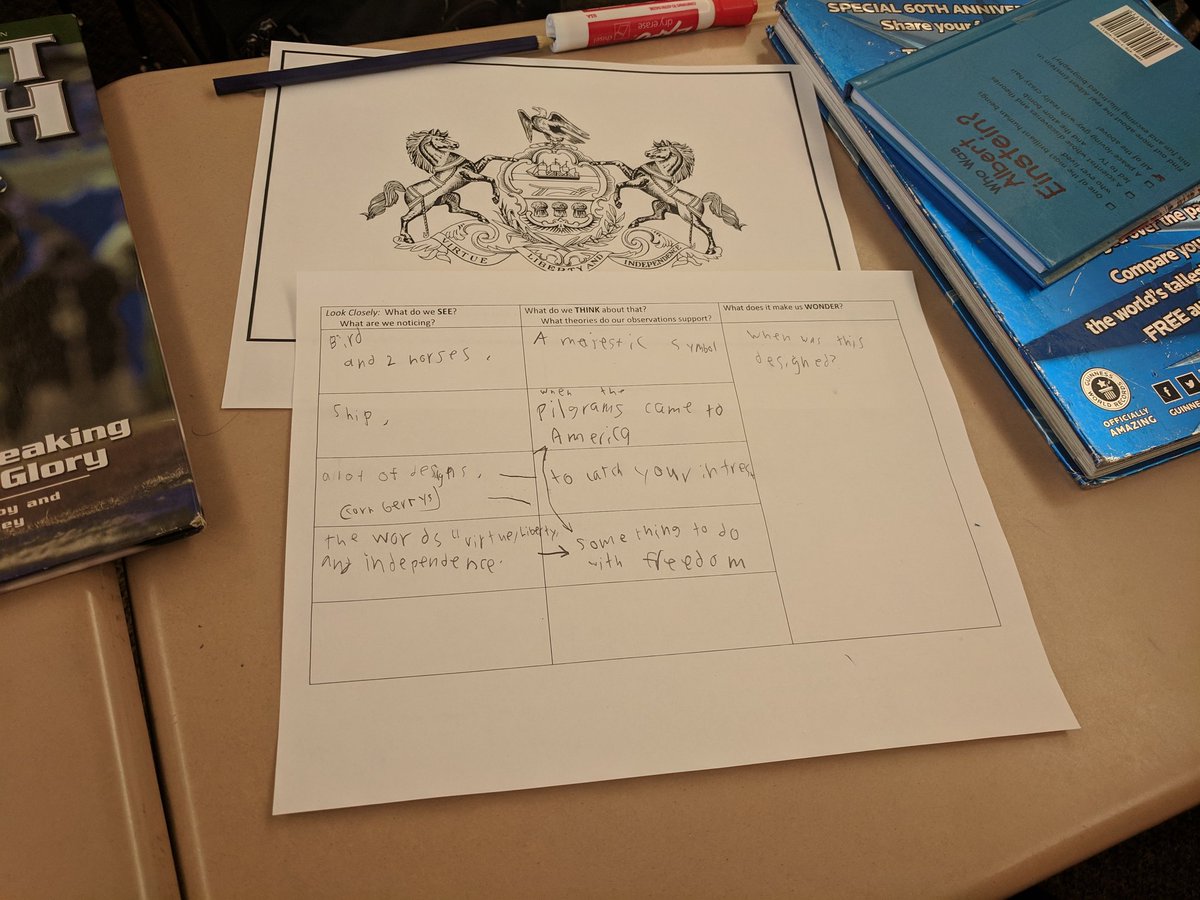 T
H
eaking
Glory
by and
ey
dry erase
SPECIAL 60TH ANNIVER
Share your
Who Was
Albert
Einstein?
over the pa
Compare your
the world's talles
FREE au
GUINNESS
WORLD RECORDS
OFFICIALLY
AMAZING
GUINN
VIRTUE
LIBERTY AND
INDEPENDENCE
Look Closely: What do we SEE?
What are we noticing?
What do we THINK about that?
What theories do our observations support?
What does it make us WONDER?
Bird
and 2 horses,
A mejestic symbol
when was this
designed?
Ship,
when the
pilgrams came to
America
a lot of designs,
(corn berrys)
to catch your intrest
the words "virtue, Liberty,
and independence.
something to do
with freedom